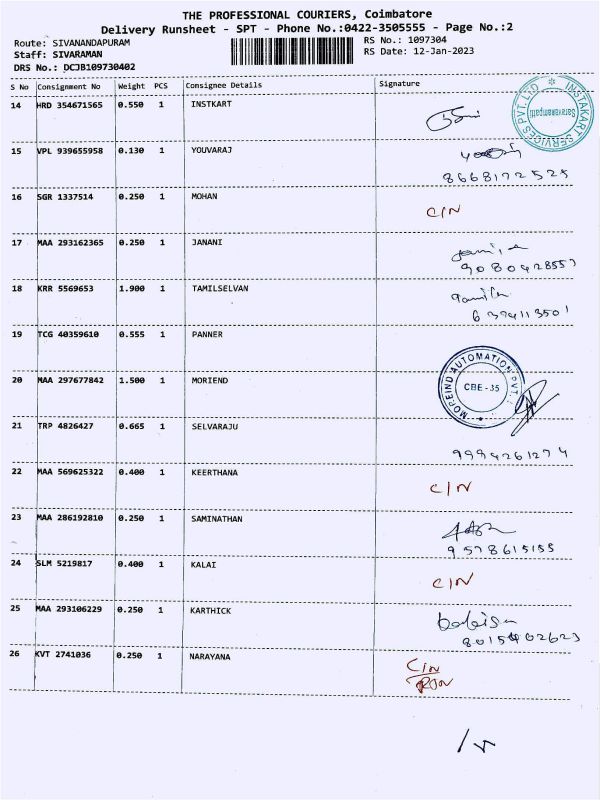 THE PROFESSIONAL COURIERS, Coimbatore
Delivery Runsheet - SPT - Phone No.:0422-3505555 - Page No.:2
Route: SIVANANDAPURAM RS No.: 1097304
Staff: SIVARAMAN RS Date: 12-Jan-2023
DRS No.: DCJB109730402
S No Consignment No Weight PCS Consignee Details Signature
14 HRD 354671565 0.550 1 INSTKART
INSTAKART SERVICES PVT. LTD * Saravanampatti
15 VPL 939655958 0.130 1 YOUVARAJ
8668172525
16 SGR 1337514 0.250 1 MOHAN C/N
17 MAA 293162365 0.250 1 JANANI
9080428557
18 KRR 5569653 1.900 1 TAMILSELVAN
6379411350 1
19 TCG 40359610 0.555 1 PANNER
20 MAA 297677842 1.500 1 MORIEND
MOREIND AUTOMATION PVT. CBE-35
21 TRP 4826427 0.665 1 SELVARAJU
9994261274
22 MAA 569625322 0.400 1 KEERTHANA C/N
23 MAA 286192810 0.250 1 SAMINATHAN
9578615155
24 SLM 5219817 0.400 1 KALAI C/N
25 MAA 293106229 0.250 1 KARTHICK
8015402623
26 KVT 2741036 0.250 1 NARAYANA C/N